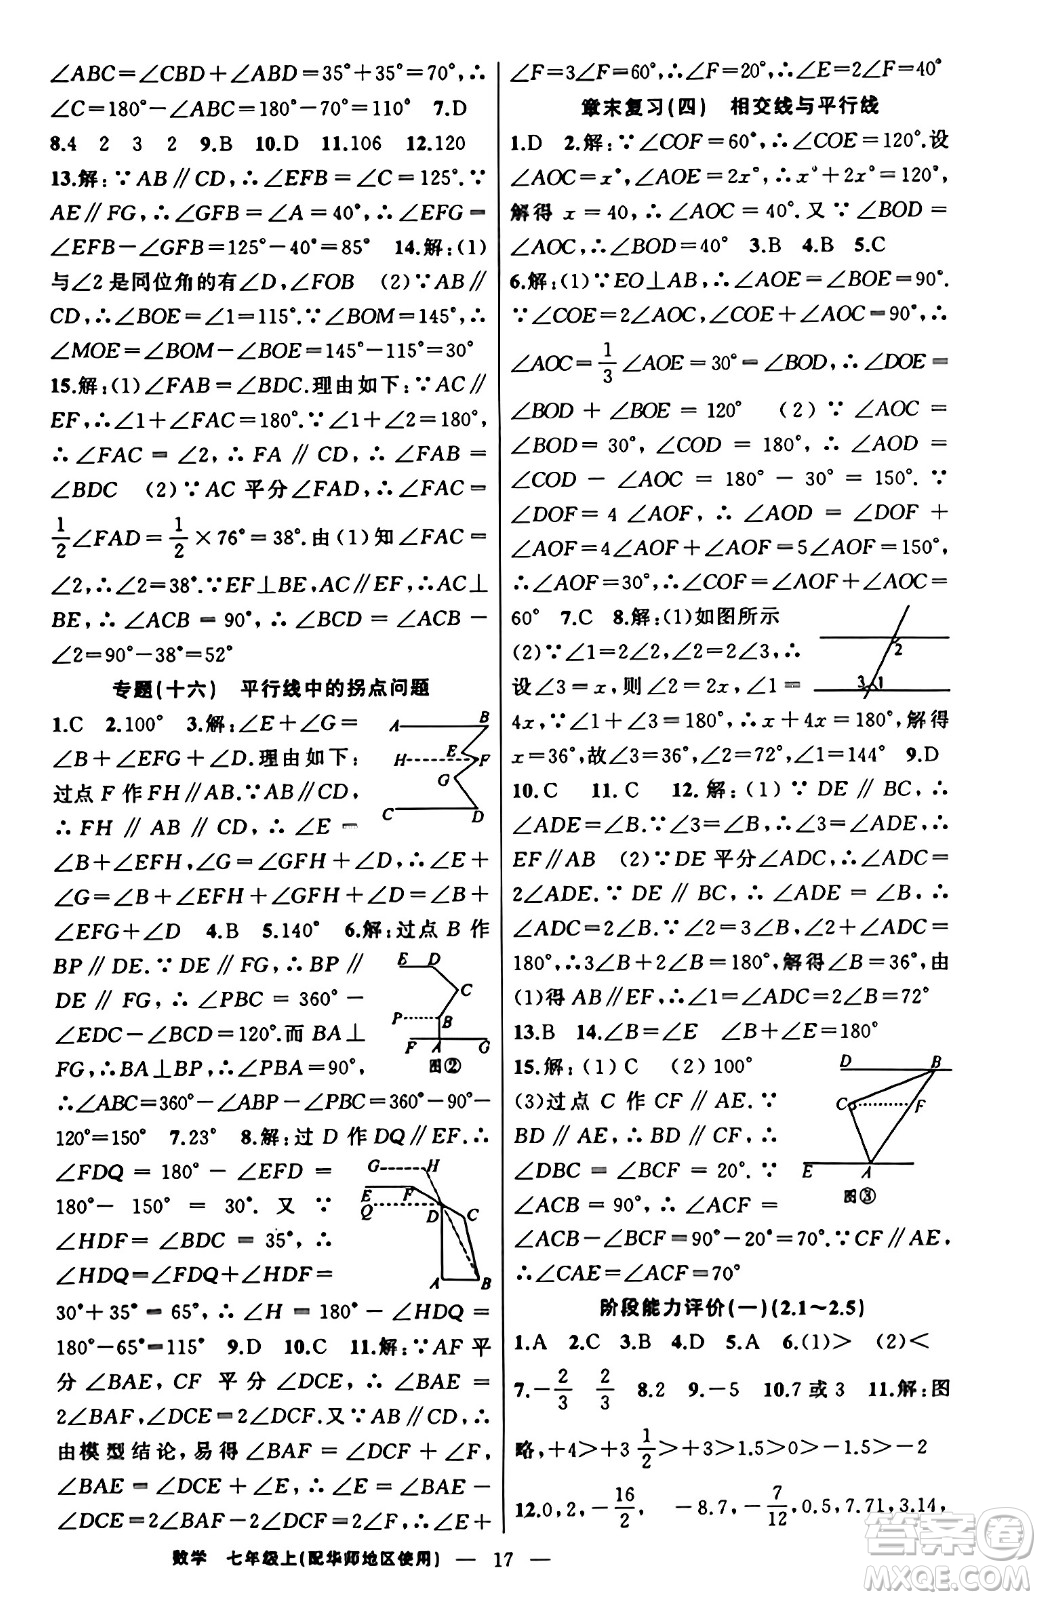 ∠ABC=∠CBD+∠ABD=35°+35°=70°,∴
∠C=180°-∠ABC=180°-70°=110° 7.D
8.4 2 3 2 9.B 10.D 11.106 12.120
13.解:∵AB∥CD,∴∠EFB=∠C=125°.∵
AE∥FG,∴∠GFB=∠A=40°,∴∠EFG=
∠EFB-∠GFB=125°-40°=85° 14.解:(1)
与∠2是同位角的有∠D,∠FOB (2)∵AB∥
CD,∴∠BOE=∠1=115°.∵∠BOM=145°,∴
∠MOE=∠BOM-∠BOE=145°-115°=30°
15.解:(1)∠FAB=∠BDC.理由如下:∵AC∥
EF,∴∠1+∠FAC=180°.∵∠1+∠2=180°,
∴∠FAC=∠2,∴FA∥CD,∴∠FAB=
∠BDC (2)∵AC平分∠FAD,∴∠FAC=
1/2∠FAD=1/2×76°=38°.由(1)知∠FAC=
∠2,∴∠2=38°.∵EF⊥BE,AC∥EF,∴AC⊥
BE,∴∠ACB=90°,∴∠BCD=∠ACB-
∠2=90°-38°=52°
专题(十六) 平行线中的拐点问题
1.C 2.100° 3.解:∠E+∠G=
∠B+∠EFG+∠D.理由如下:
过点F作FH∥AB.∵AB∥CD,
∴FH∥AB∥CD,∴∠E=
∠B+∠EFH,∠G=∠GFH+∠D,∴∠E+
∠G=∠B+∠EFH+∠GFH+∠D=∠B+
∠EFG+∠D 4.B 5.140° 6.解:过点B作
BP∥DE.∵DE∥FG,∴BP∥
DE∥FG,∴∠PBC=360°-
∠EDC-∠BCD=120°.而BA⊥
FG,∴BA⊥BP,∴∠PBA=90°,
∴∠ABC=360°-∠ABP-∠PBC=360°-90°-
120°=150° 7.23° 8.解:过D作DQ∥EF.∴
∠FDQ=180°-∠EFD=
180°-150°=30°.又∵
∠HDF=∠BDC=35°,∴
∠HDQ=∠FDQ+∠HDF=
30°+35°=65°,∴∠H=180°-∠HDQ=
180°-65°=115° 9.D 10.C 11.解:∵AF平
分∠BAE,CF平分∠DCE,∴∠BAE=
2∠BAF,∠DCE=2∠DCF.又∵AB∥CD,∴
由模型结论,易得∠BAF=∠DCF+∠F,
∠BAE=∠DCE+∠E,∴∠E=∠BAE-
∠DCE=2∠BAF-2∠DCF=2∠F,∴∠E+
A B H E F G C D
E D C P B F A G 图②
G H E F Q D C A B
∠F=3∠F=60°,∴∠F=20°,∴∠E=2∠F=40°
章末复习(四) 相交线与平行线
1.D 2.解:∵∠COF=60°,∴∠COE=120°.设
∠AOC=x°,∠AOE=2x°,∴x°+2x°=120°,
解得x=40,∴∠AOC=40°.又∵∠BOD=
∠AOC,∴∠BOD=40° 3.B 4.B 5.C
6.解:(1)∵EO⊥AB,∴∠AOE=∠BOE=90°.
∵∠COE=2∠AOC,∠COE+∠AOC=90°,∴
∠AOC=1/3∠AOE=30°=∠BOD,∴∠DOE=
∠BOD+∠BOE=120° (2)∵∠AOC=
∠BOD=30°,∠COD=180°,∴∠AOD=
∠COD-∠AOC=180°-30°=150°.∵
∠DOF=4∠AOF,∴∠AOD=∠DOF+
∠AOF=4∠AOF+∠AOF=5∠AOF=150°,
∴∠AOF=30°,∴∠COF=∠AOF+∠AOC=
60° 7.C 8.解:(1)如图所示
(2)∵∠1=2∠2,∠2=2∠3,∴
设∠3=x,则∠2=2x,∠1=
4x,∵∠1+∠3=180°,∴x+4x=180°,解得
x=36°,故∠3=36°,∠2=72°,∠1=144° 9.D
10.C 11.C 12.解:(1)∵DE∥BC,∴
∠ADE=∠B.∵∠3=∠B,∴∠3=∠ADE,∴
EF∥AB (2)∵DE平分∠ADC,∴∠ADC=
2∠ADE.∵DE∥BC,∴∠ADE=∠B,∴
∠ADC=2∠B.∵∠2=3∠B,∠2+∠ADC=
180°,∴3∠B+2∠B=180°,解得∠B=36°,由
(1)得AB∥EF,∴∠1=∠ADC=2∠B=72°
13.B 14.∠B=∠E ∠B+∠E=180°
15.解:(1)C (2)100°
(3)过点C作CF∥AE.∵
BD∥AE,∴BD∥CF,∴
∠DBC=∠BCF=20°.∵
∠ACB=90°,∴∠ACF=
∠ACB-∠BCF=90°-20°=70°.∵CF∥AE,
∴∠CAE=∠ACF=70°
2
3 1
D B C F E A 图③
阶段能力评价(一)(2.1~2.5)
1.A 2.C 3.B 4.D 5.A 6.(1)> (2)<
7.-2/3 2/3 8.2 9.-5 10.7或3 11.解:图
略,+4>+3 1/2>+1.5>0>-1.5>-2
12.0,2,-16/2, -8.7,-7/12,0.5,7.71,3.14,
数学 七年级上(配华师地区使用) — 17 —
答案圈
MXQE.COM